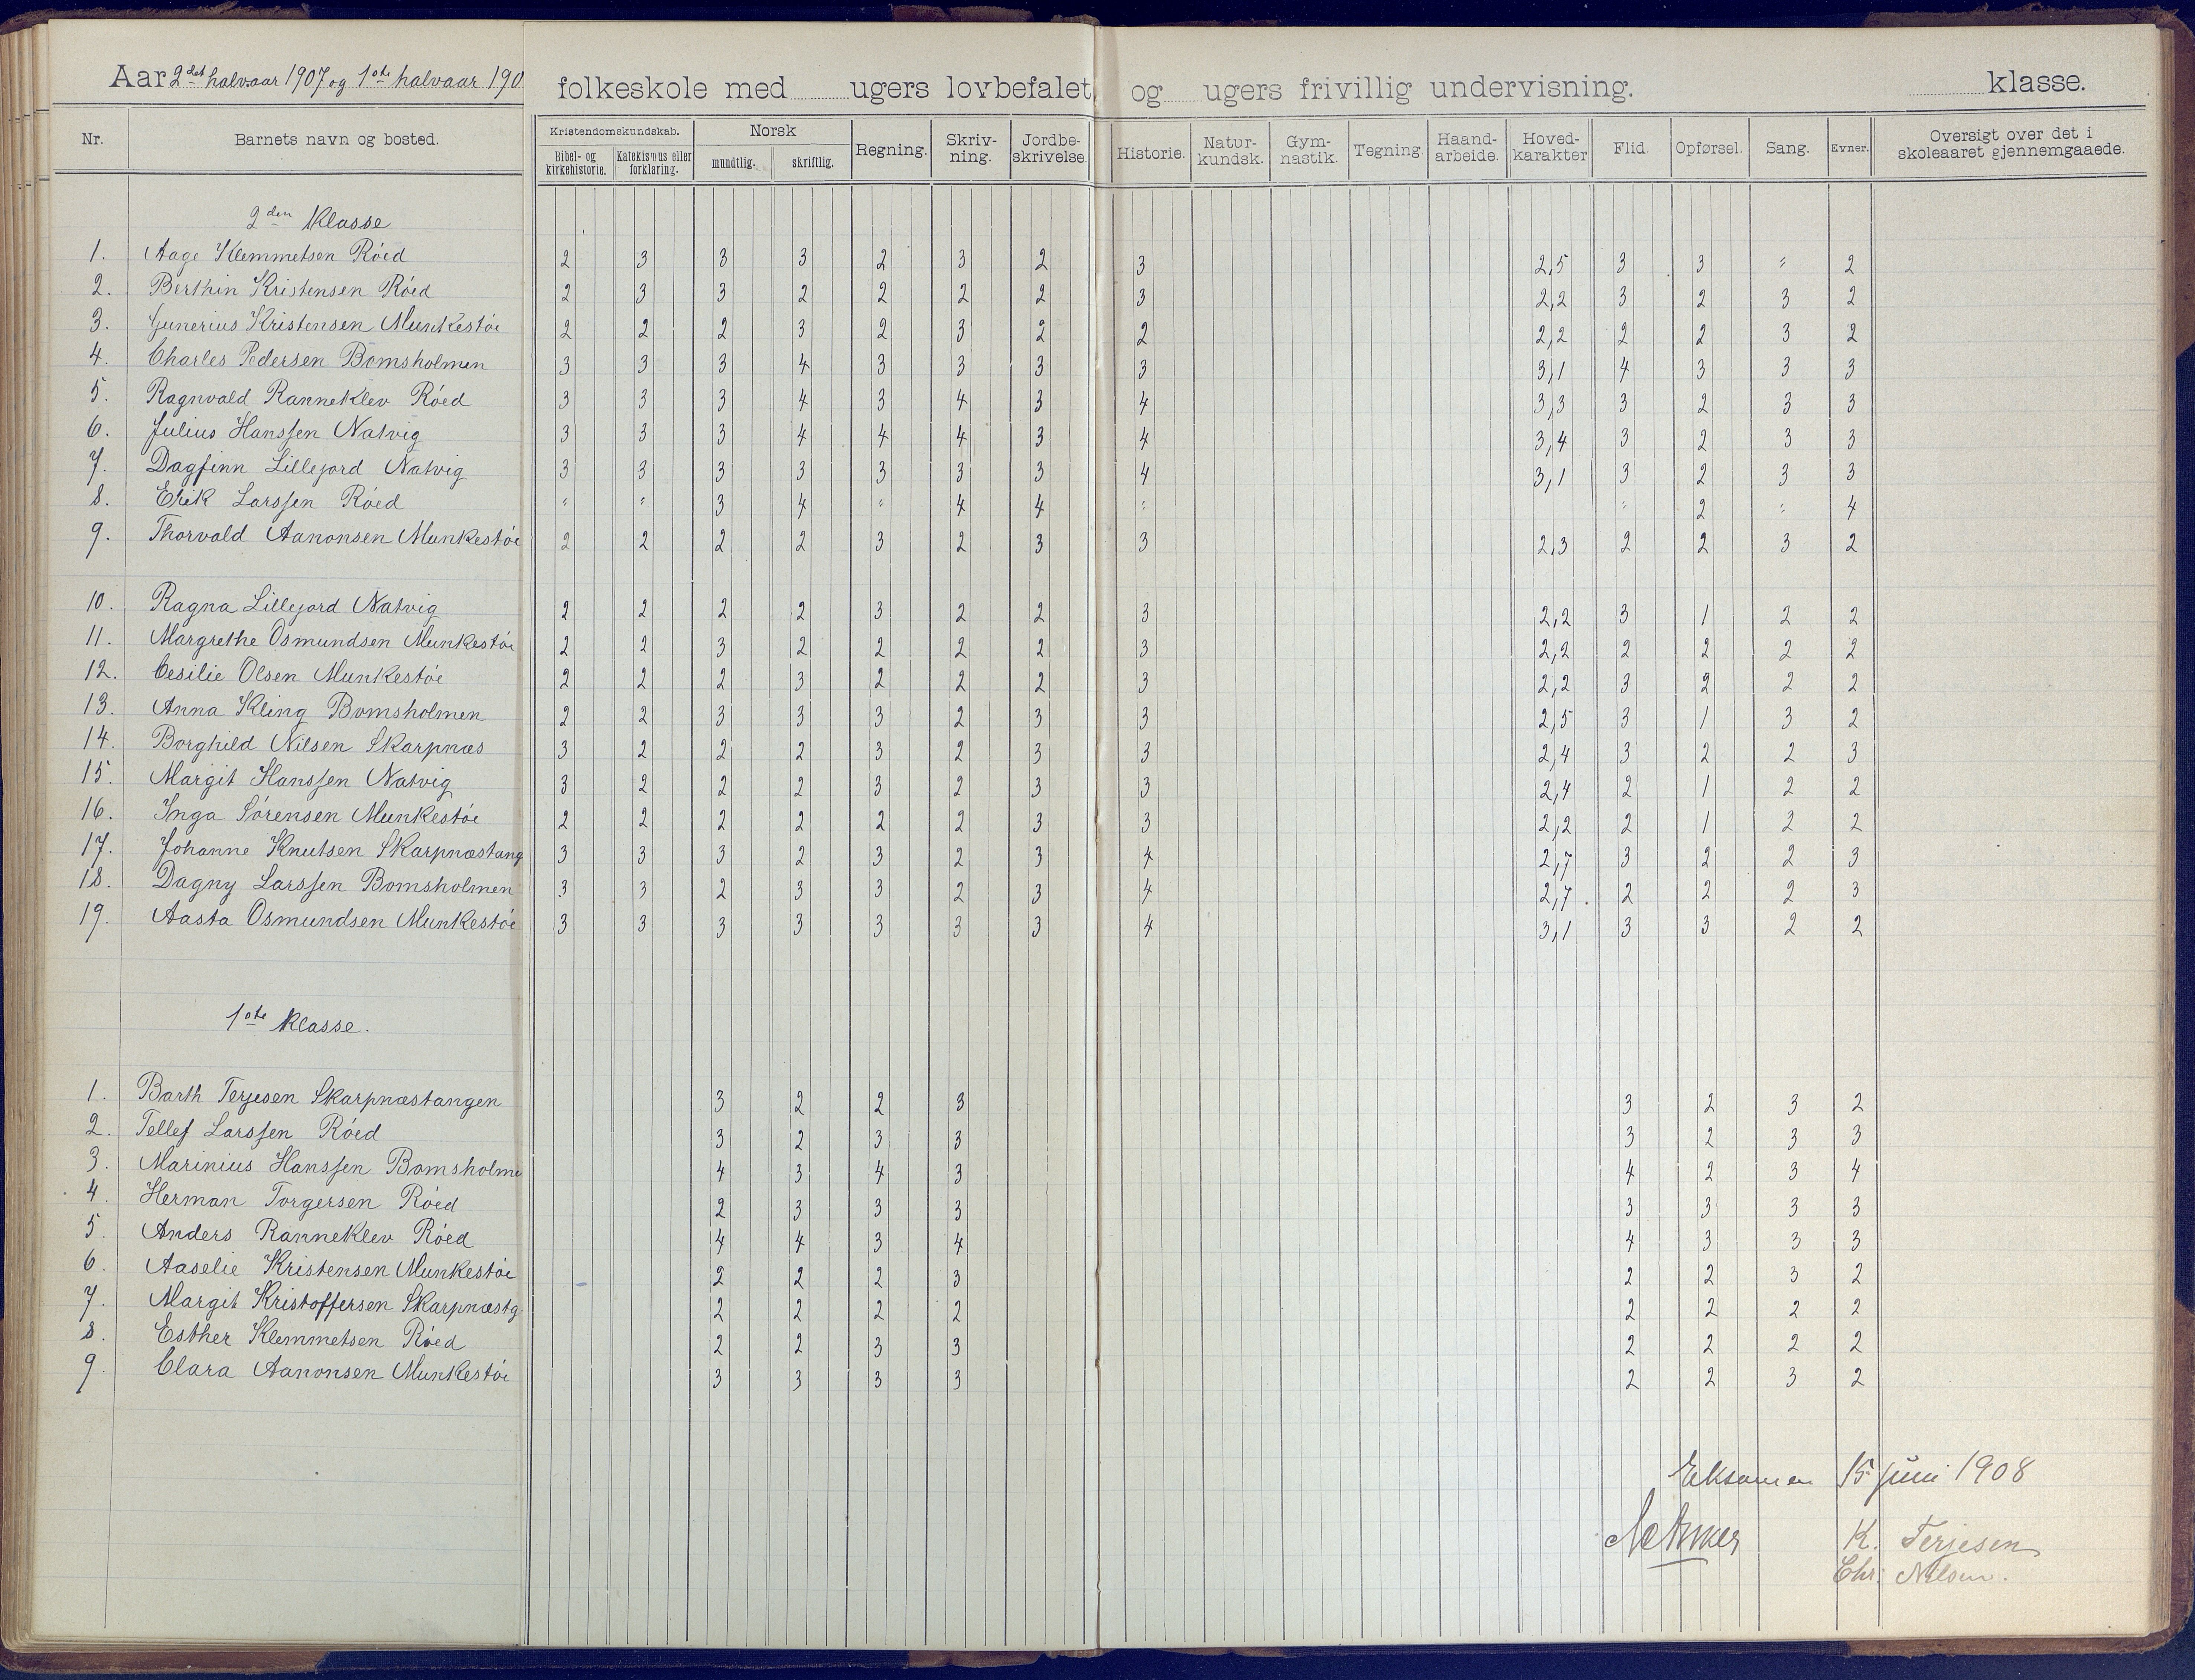 Aar 2det halvaar 1907 og 1ste halvaar 190
folkeskole med ugers lovbefalet og ugers frivillig undervisning. klasse.
Nr. Barnets navn og bosted. Kristendomskundskab. Norsk Regning. Skriv-ning. Jordbe-skrivelse. Historie. Natur-kundsk. Gym-nastik. Tegning. Haand-arbeide. Hoved-karakter Flid. Opførsel. Sang. Evner. Oversigt over det i skoleaaret gjennemgaaede.
Bibel- og kirkehistorie. Katekismus eller forklaring. mundtlig. skriftlig.
2den Klasse
1. Aage Klemmetsen Röed 2 3 3 3 2 3 2 3 2,5 3 3 " 2
2. Berthin Kristensen Röed 2 3 3 2 2 2 2 3 2,2 3 2 3 2
3. Gunerius Kristensen Munkestöe 2 2 2 3 2 3 2 2 2,2 2 2 3 2
4. Charles Pedersen Bomsholmen 3 3 3 4 3 3 3 3 3,1 4 3 3 3
5. Ragnvald Ranneklev Röed 3 3 3 4 3 4 3 4 3,3 3 2 3 3
6. Julius Hanssen Natvig 3 3 3 4 4 4 3 4 3,4 3 2 3 3
7. Dagfinn Lillejord Natvig 3 3 3 3 3 3 3 4 3,1 3 2 3 3
8. Erik Larssen Röed " " 3 4 " 4 4 " " 2 " 4
9. Thorvald Aanonsen Munkestöe 2 2 2 2 3 2 3 3 2,3 2 2 3 2
10. Ragna Lillejord Natvig 2 2 2 2 3 2 2 3 2,2 3 1 2 2
11. Margrethe Osmundsen Munkestöe 2 2 3 2 2 2 2 3 2,2 2 2 2 2
12. Cesilie Olsen Munkestöe 2 2 2 3 2 2 2 3 2,2 3 2 2 2
13. Anna Kling Bomsholmen 2 2 3 3 3 2 3 3 2,5 3 1 3 2
14. Borghild Nilsen Skarpnæs 3 2 2 2 3 2 3 3 2,4 3 2 2 3
15. Margit Hanssen Natvig 3 2 2 2 3 2 3 3 2,4 2 1 2 2
16. Inga Sörensen Munkestöe 2 2 2 2 2 2 3 3 2,2 2 1 2 2
17. Johanne Knutsen Skarpnæstang 3 3 3 2 3 2 3 4 2,7 3 2 2 3
18. Dagny Larssen Bomsholmen 3 3 2 3 3 2 3 4 2,7. 2 2 2 3
19. Aasta Osmundsen Munkestöe 3 3 3 3 3 3 3 4 3,1 3 3 2 2
1ste klasse.
1. Barth Terjesen Skarpnæstangen 3 2 2 3 3 2 3 2
2. Tellef Larssen Röed 3 2 3 3 3 2 3 3
3. Marinius Hanssen Bomsholme 4 3 4 3 4 2 3 4
4. Herman Torgersen Röed 2 3 3 3 3 3 3 3
5. Anders Ranneklev Röed 4 4 3 4 4 3 3 3
6. Aaselie Kristensen Munkestöe 2 2 2 3 2 2 3 2
7. Margit Kristoffersen Skarpnæstg. 2 2 2 2 2 2 2 2
8. Esther Klemmetsen Röed 2 2 3 3 2 2 2 2
9. Clara Aanonsen Munkestöe 3 3 3 3 2 2 3 2
Eksamen 15 juni 1908
K. Terjesen
Chr. Nilsen.